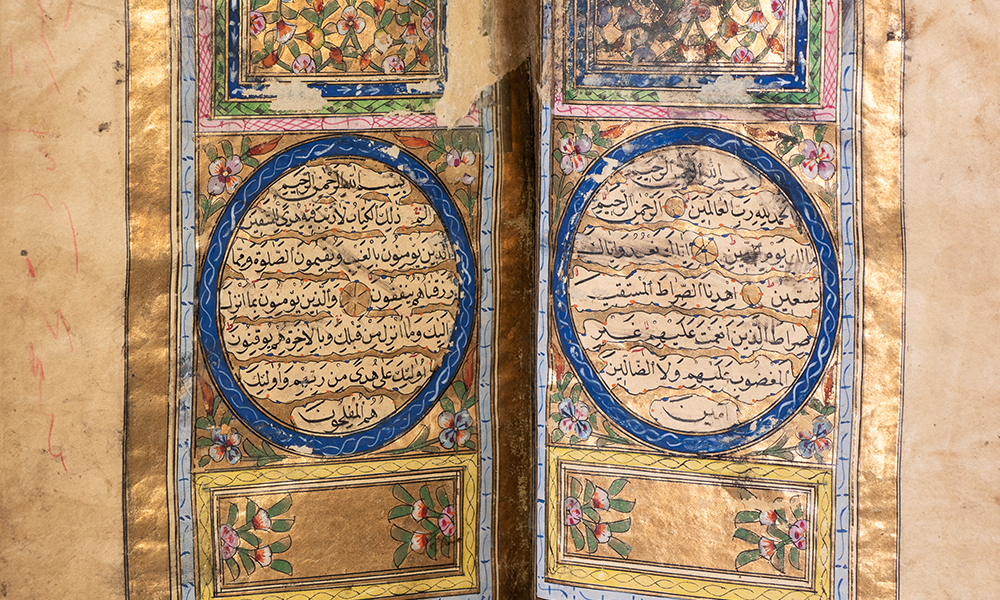 بسم الله الرحمن الرحيم
الحمد لله رب العالمين الرحمن الرحيم
يوم الدين اياك نعبد واياك
نستعين اهدنا الصراط المستقيم
صراط الذين انعمت عليهم غير
المغضوب عليهم ولا الضالين
امين
بسم الله الرحمن الرحيم
الم ذلك الكتاب لا ريب فيه هدى للمتقين
الذين يومنون بالغيب ويقيمون الصلوة ومما
رزقناهم ينفقون والذين يومنون بما انزل
اليك وما انزل من قبلك وبالاخرة هم يوقنون
اولئك على هدى من ربهم واولئك
هم المفلحون